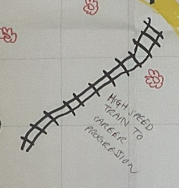 HIGH SPEED
TRAIN TO
CAREER
PROGRESSION